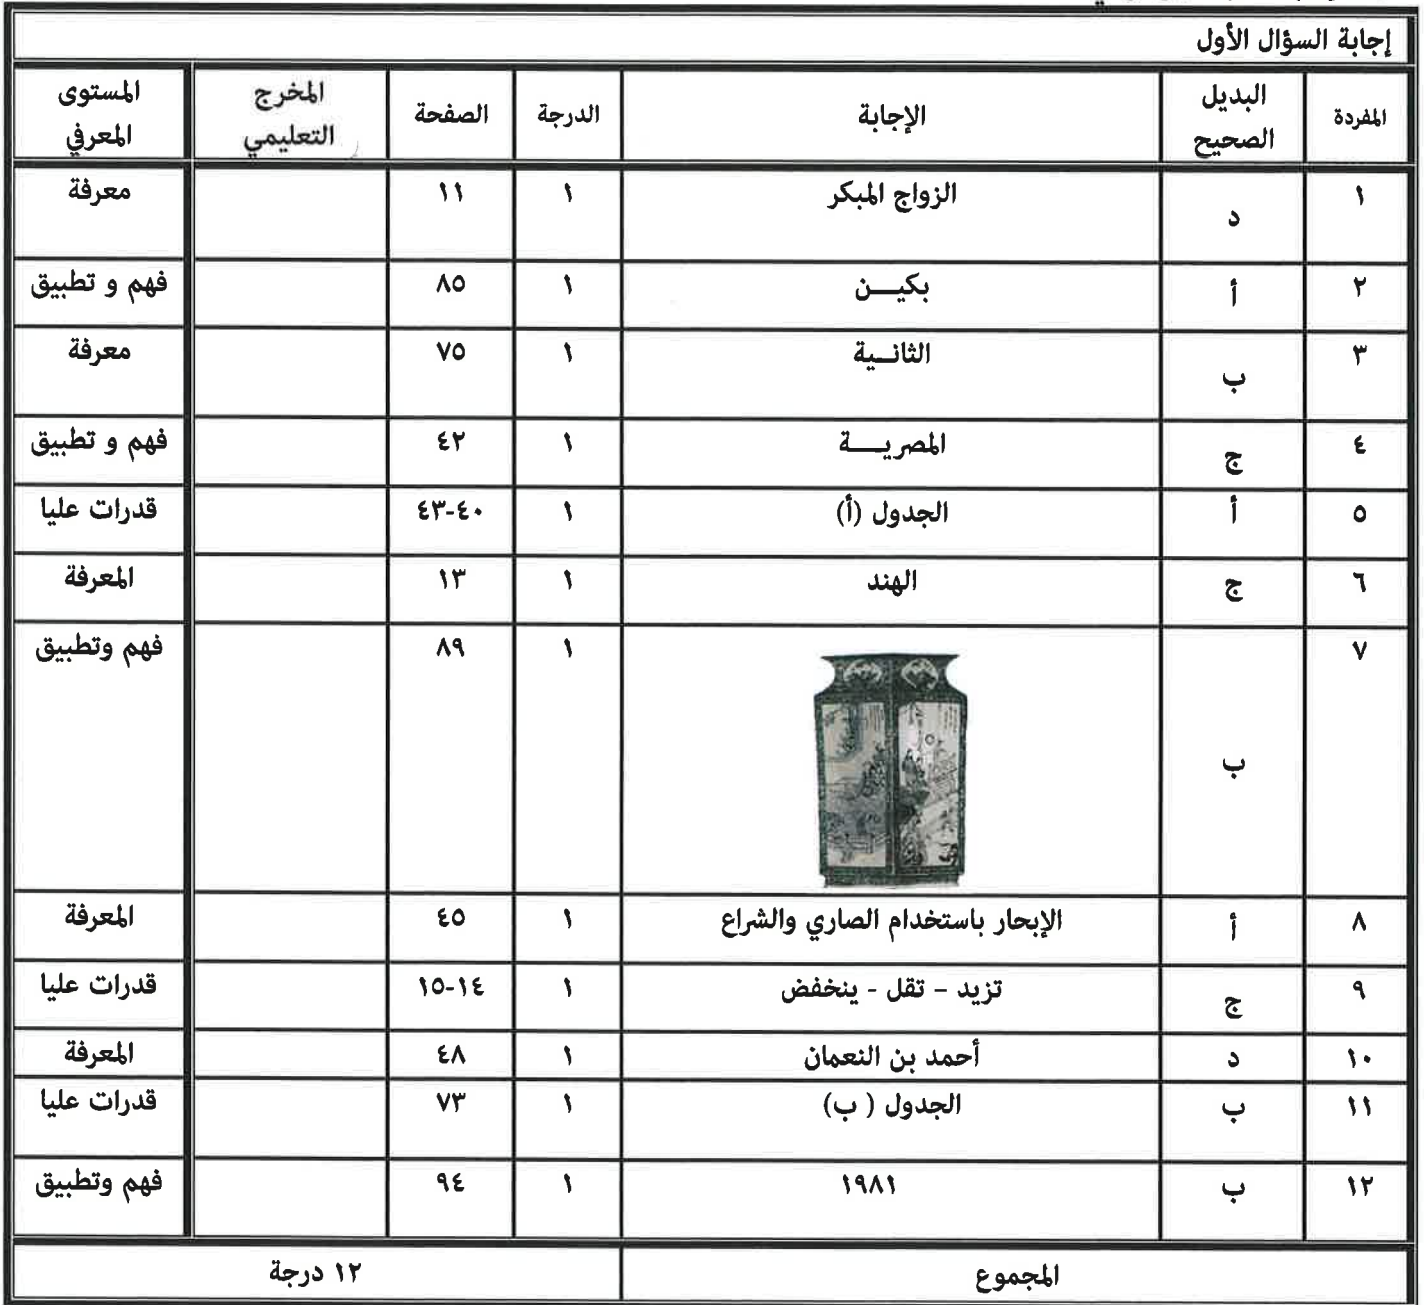 إجابة السؤال الأول
المفردة البديل الصحيح الإجابة الدرجة الصفحة المخرج التعليمي المستوى المعرفي
١ د الزواج المبكر ١ ١١ معرفة
٢ أ بكيـــن ١ ٨٥ فهم و تطبيق
٣ ب الثانـــية ١ ٧٥ معرفة
٤ ج المصريـــــة ١ ٤٢ فهم و تطبيق
٥ أ الجدول (أ) ١ ٤٠-٤٣ قدرات عليا
٦ ج الهند ١ ١٣ المعرفة
٧ ب ١ ٨٩ فهم وتطبيق
٨ أ الإبحار باستخدام الصاري والشراع ١ ٤٥ المعرفة
٩ ج تزيد – تقل - ينخفض ١ ١٤-١٥ قدرات عليا
١٠ د أحمد بن النعمان ١ ٤٨ المعرفة
١١ ب الجدول ( ب) ١ ٧٣ قدرات عليا
١٢ ب ١٩٨١ ١ ٩٤ فهم وتطبيق
المجموع ١٢ درجة